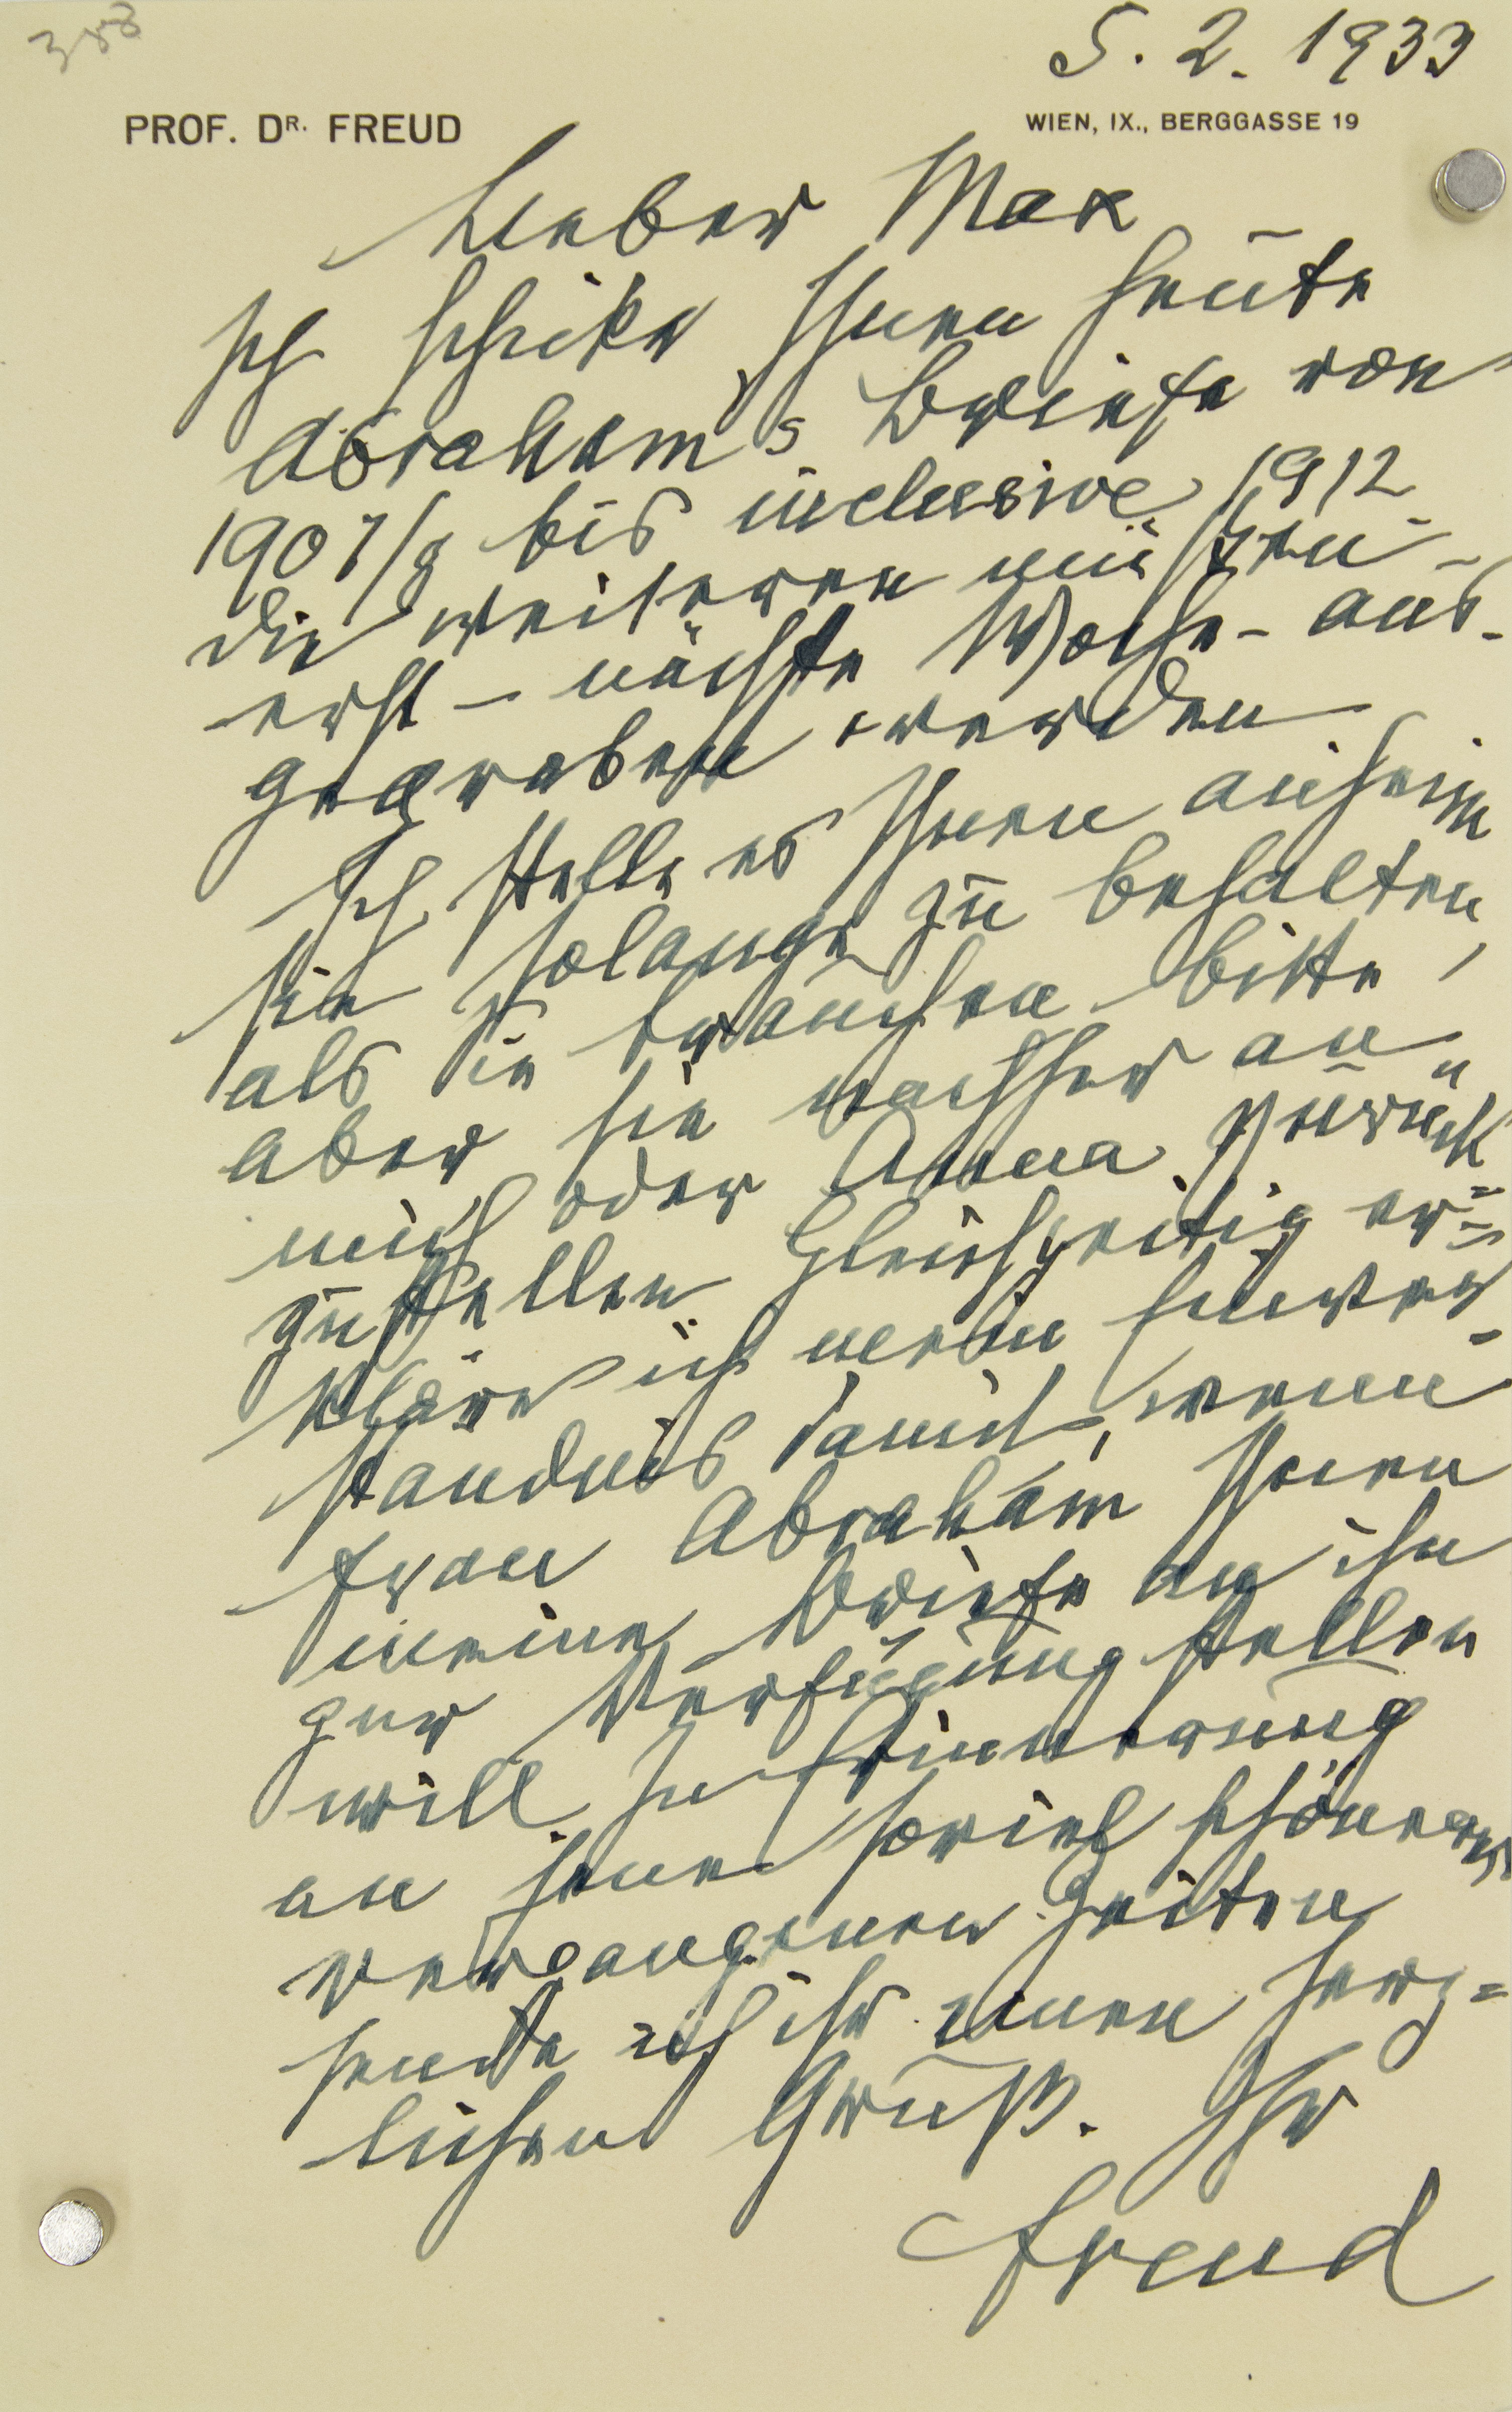 358
5. 2. 1933
PROF. DR. FREUD
WIEN, IX., BERGGASSE 19
Lieber Max
Ich schicke Ihnen heute
Abraham's Briefe von
1907/8 bis inclusive 1912
die weiteren müssen
erst – nächste Woche – aus-
gegraben werden
Ich stelle es Ihnen anheim
sie solange zu behalten,
als Sie brauchen bitte
aber sie nachher an
mich oder Anna zurück
zustellen. Gleichzeitig er=
kläre ich mein Einver=
ständnis damit, wenn
Frau Abraham Ihnen
meine Briefe an ihn
zur Verfügung stellen
will. In Erinnerung
an jene soviel schöneren
vergangenen Zeiten
sende ich ihr einen herz=
lichen Gruß. Ihr
Freud